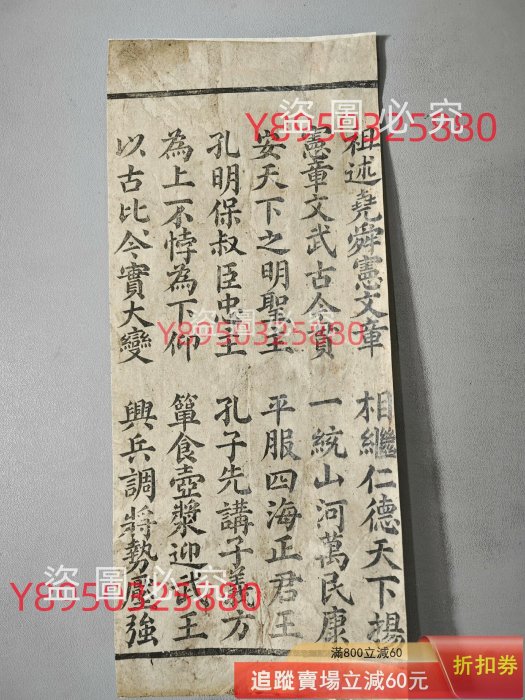 祖述堯舜憲文章
相繼仁德天下揚
憲章文武古今贊
一統山河萬民康
安天下之明聖主
平服四海正君王
孔明保叔臣忠主
孔子先講子義方
為上不悖為下仰
簞食壺漿迎武王
以古比今實大變
興兵調將勢壓強
盜圖必究
Y8950325880
盜圖必究
Y8950325880
盜圖必究
Y8950325880
滿800立減60
追蹤賣場立減60元
折扣券